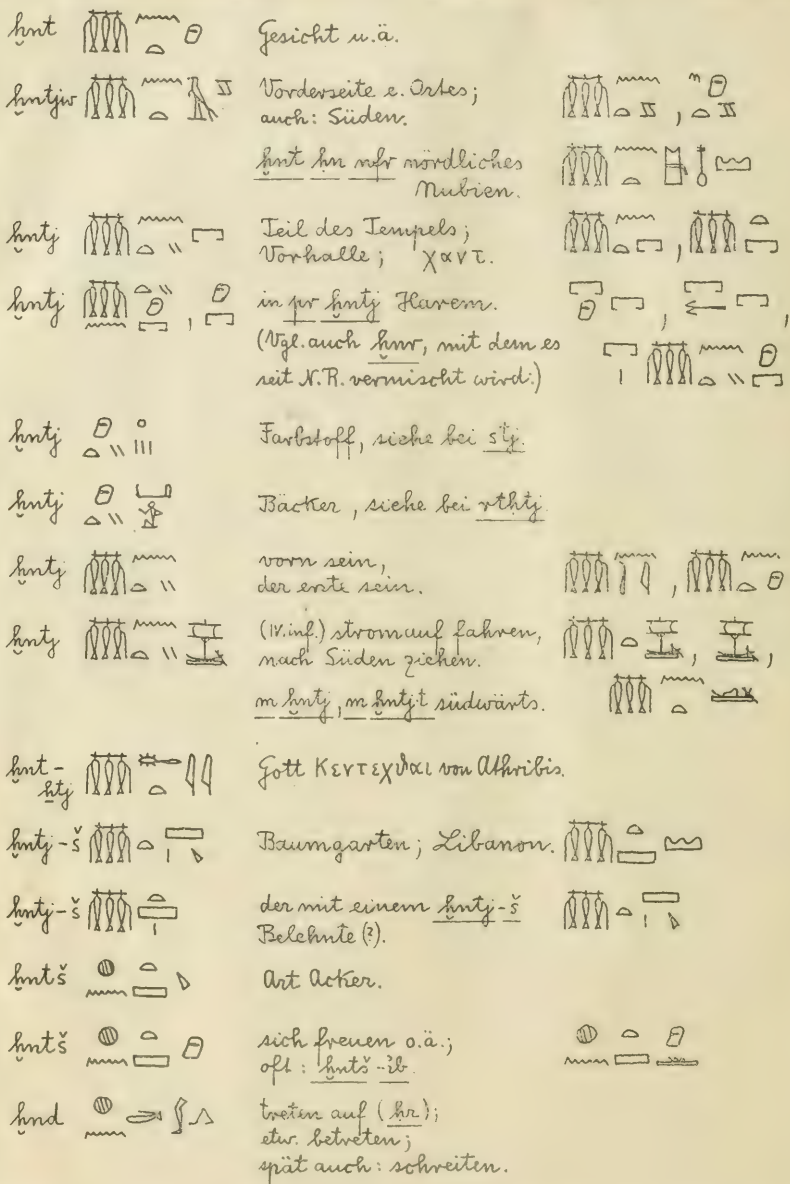 ḫnt Gesicht u.ä.
ḫntjw Vorderseite e. Ortes;
auch: Süden.
ḫnt ḥn nfr nördliches
Nubien.
ḫntj Teil des Tempels;
Vorhalle; χαντ.
ḫntj in pr ḫntj Harem.
(Vgl. auch ḫnr, mit dem es
seit N.R. vermischt wird.)
ḫntj Farbstoff, siehe bei stj.
ḫntj Bäcker, siehe bei rtḥtj
ḫntj vorn sein,
der erste sein.
ḫntj (IV. inf.) stromauf fahren,
nach Süden ziehen.
m ḫntj, m ḫntj.t südwärts.
ḫnt-
ẖtj Gott Κεντεχθαι von Athribis.
ḫntj-š Baumgarten; Libanon.
ḫntj-š der mit einem ḫntj-š
Belehnte (?).
ḫntš Art Acker.
ḫntš sich freuen o.ä.;
oft: ḫntš-ib.
ḫnd treten auf (ḥr);
etw. betreten;
spät auch: schreiten.